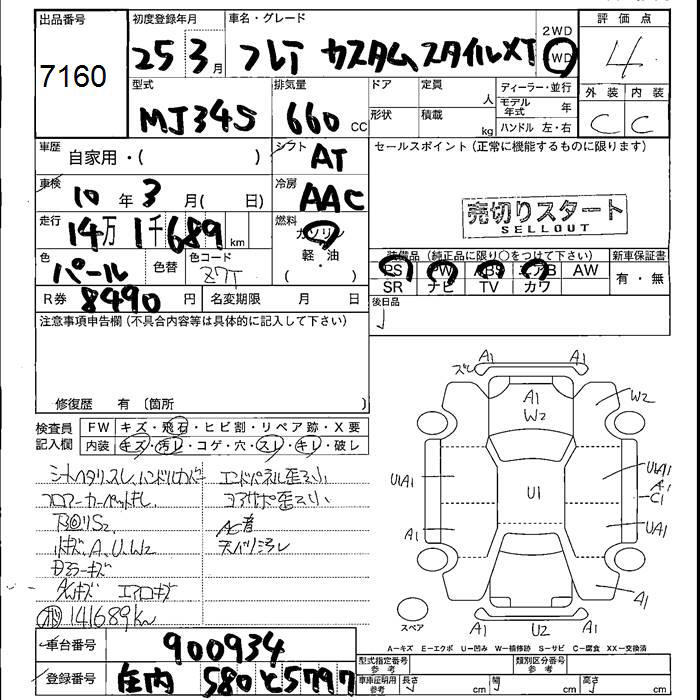 出品番号 初度登録年月 車名・グレード 2WD 評価点
7160 25 3月 フレア カスタムスタイルXT 4WD 4
型式 排気量 ドア 定員 人 ディーラー・並行 外装 内装
MJ34S 660 CC 形状 積載 kg モデル年式 年 C C
ハンドル 左・右
車歴 自家用・( ) シフト AT セールスポイント (正常に機能するものに限ります)
車検 10年 3月( 日) 冷房 AAC
売切りスタート
SELLOUT
走行 14万1千689km 燃料 ガソリン
軽・油
( ・ )
色 パール 色替 色コード Z7T
装備品 (純正品に限り○をつけて下さい) 新車保証書
PS PW ABS エアB AW 有・無
SR ナビ TV カワ
R券 8490円 名変期限 月 日 後日品
注意事項申告欄 (不具合内容等は具体的に記入して下さい)
修復歴 有 〔箇所 〕
検査員記入欄 FW キズ・飛石・ヒビ割・リペア跡・X要
内装 キズ・汚レ・コゲ・穴・スレ・キレ・破レ
シートヘタリスレ、ハンドルカバー
フロアーカーペットキレ
エンドパネル歪ミ小
コアサポ歪ミ小
AC音
A、U、W2
ドアミラーキズ
エアロキズ
141689km
ズレ A1 A1
A1
W2
W2
U1A1 U1 U1A1
A1
C1
A1 UA1
A1
A1 U2 A1
スペア
A-キズ E-エクボ U-凹み W-補修跡 S-サビ C-腐食 XX-交換済
車台番号 900934
登録番号 庄内 580 と5797
型式指定番号 参考 類別区分番号 参考
車庫証明用 参考 長さ cm 幅 cm 高さ cm